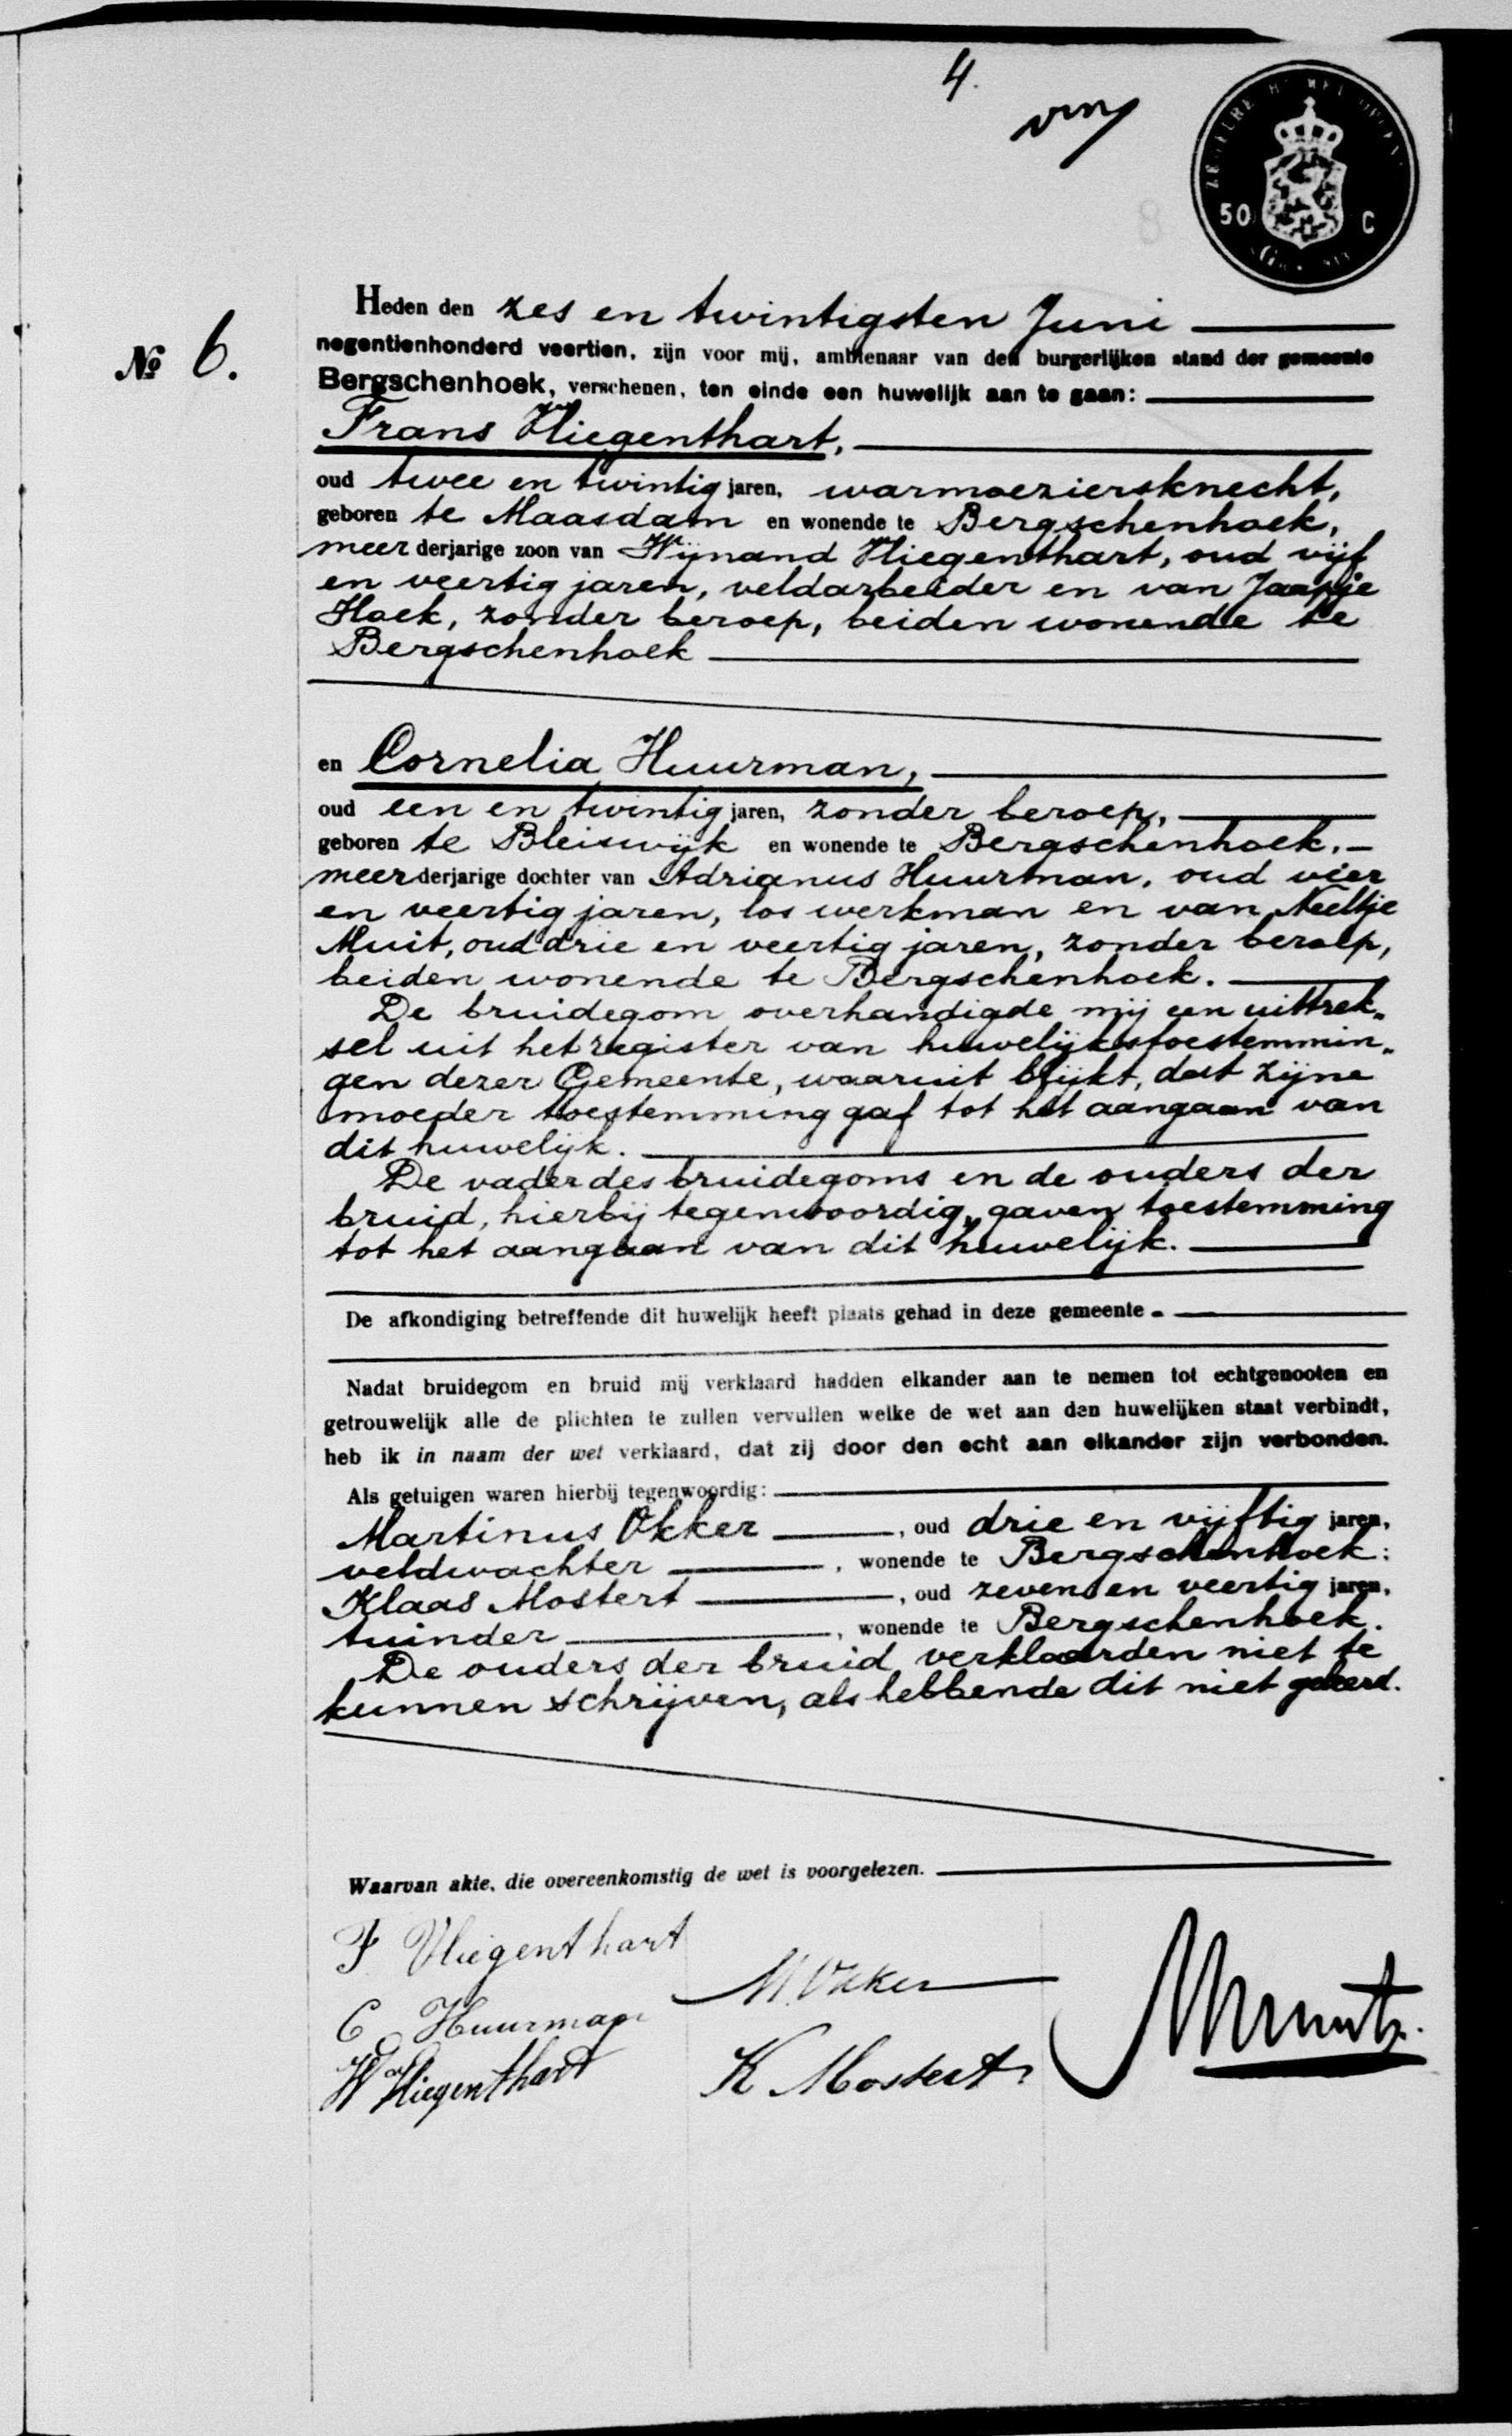 4.
50 C
№ 6.
Heden den zes en twintigsten Juni
negentienhonderd veertien, zijn voor mij, ambtenaar van den burgerlijken stand der gemeente
Bergschenhoek, verschenen, ten einde een huwelijk aan te gaan:
Frans Vliegenthart,
oud twee en twintig jaren, warmoeziersknecht,
geboren te Maasdam en wonende te Bergschenhoek,
meerderjarige zoon van Wijnand Vliegenthart, oud vijf
en veertig jaren, veldarbeider en van Jaapje
Hoek, zonder beroep, beiden wonende te
Bergschenhoek
en Cornelia Huurman,
oud een en twintig jaren, zonder beroep,
geboren te Bleiswijk en wonende te Bergschenhoek,
meerderjarige dochter van Adrianus Huurman, oud vier
en veertig jaren, los werkman en van Neeltje
Muit, oud drie en veertig jaren, zonder beroep,
beiden wonende te Bergschenhoek.
De bruidegom overhandigde mij een uittrek„
sel uit het register van huwelijkstoestemmin„
gen dezer Gemeente, waaruit blijkt, dat zijne
moeder toestemming gaf tot het aangaan van
dit huwelijk.
De vader des bruidegoms en de ouders der
bruid, hierbij tegenwoordig, gaven toestemming
tot het aangaan van dit huwelijk.
De afkondiging betreffende dit huwelijk heeft plaats gehad in deze gemeente
Nadat bruidegom en bruid mij verklaard hadden elkander aan te nemen tot echtgenooten en
getrouwelijk alle de plichten te zullen vervullen welke de wet aan den huwelijken staat verbindt,
heb ik in naam der wet verklaard, dat zij door den echt aan elkander zijn verbonden.
Als getuigen waren hierbij tegenwoordig:
Martinus Okker, oud drie en vijftig jaren,
veldwachter, wonende te Bergschenhoek:
Klaas Mostert, oud zeven en veertig jaren,
tuinder, wonende te Bergschenhoek.
De ouders der bruid verklaarden niet te
kunnen schrijven, als hebbende dit niet geleerd.
Waarvan akte, die overeenkomstig de wet is voorgelezen.
F Vliegenthart
M. Okker
C Huurman
W Vliegenthart
K Mostert